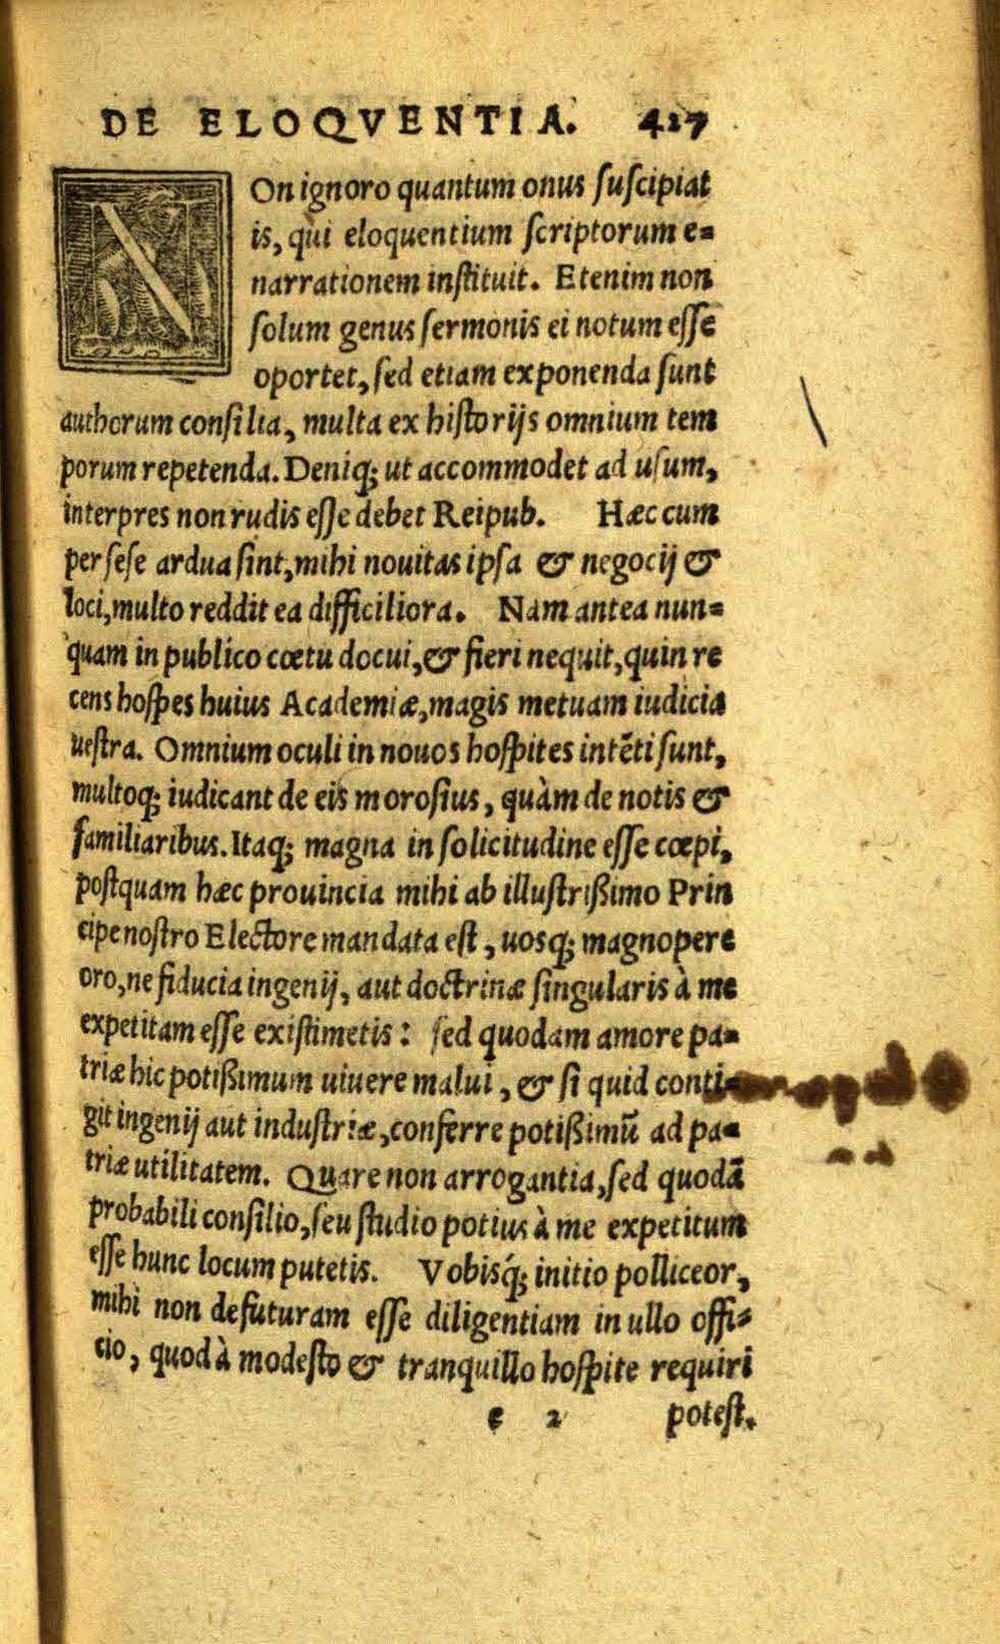 DE ELOQVENTIA. 427
NOn ignoro quantum onus ſuſcipiat
is, qui eloquentium ſcriptorum e=
narrationem inſtituit. Etenim non
ſolum genus ſermonis ei notum eſſe
oportet, ſed etiam exponenda ſunt
authorum conſilia, multa ex hiſtorijs omnium tem
porum repetenda. Deniq; ut accommodet ad uſum,
interpres non rudis eſſe debet Reipub. Hæc cum
per ſeſe ardua ſint, mihi nouitas ipſa & negocij &
loci, multo reddit ea difficiliora. Nam antea nun=
quam in publico cœtu docui, & fieri nequit, quin re
cens hoſpes huius Academiæ, magis metuam iudicia
ueſtra. Omnium oculi in nouos hoſpites intẽti ſunt,
multoq; iudicant de eis moroſius, quàm de notis &
familiaribus. Itaq; magna in ſolicitudine eſſe cœpi,
poſtquam hæc prouincia mihi ab illuſtrißimo Prin
cipe noſtro Electore mandata eſt, uosq; magnopere
oro, ne fiducia ingenij, aut doctrinæ ſingularis à me
expetitam eſſe exiſtimetis: ſed quodam amore pa=
triæ hic potißimum uiuere malui, & ſi quid conti=
git ingenij aut induſtriæ, conferre potißimũ ad pa=
triæ utilitatem. Quare non arrogantia, ſed quodã
probabili conſilio, ſeu ſtudio potius à me expetitum
eſſe hunc locum putetis. Vobisq́; initio polliceor,
mihi non defuturam eſſe diligentiam in ullo offi=
cio, quod à modeſto & tranquillo hoſpite requiri
e 2 poteſt.